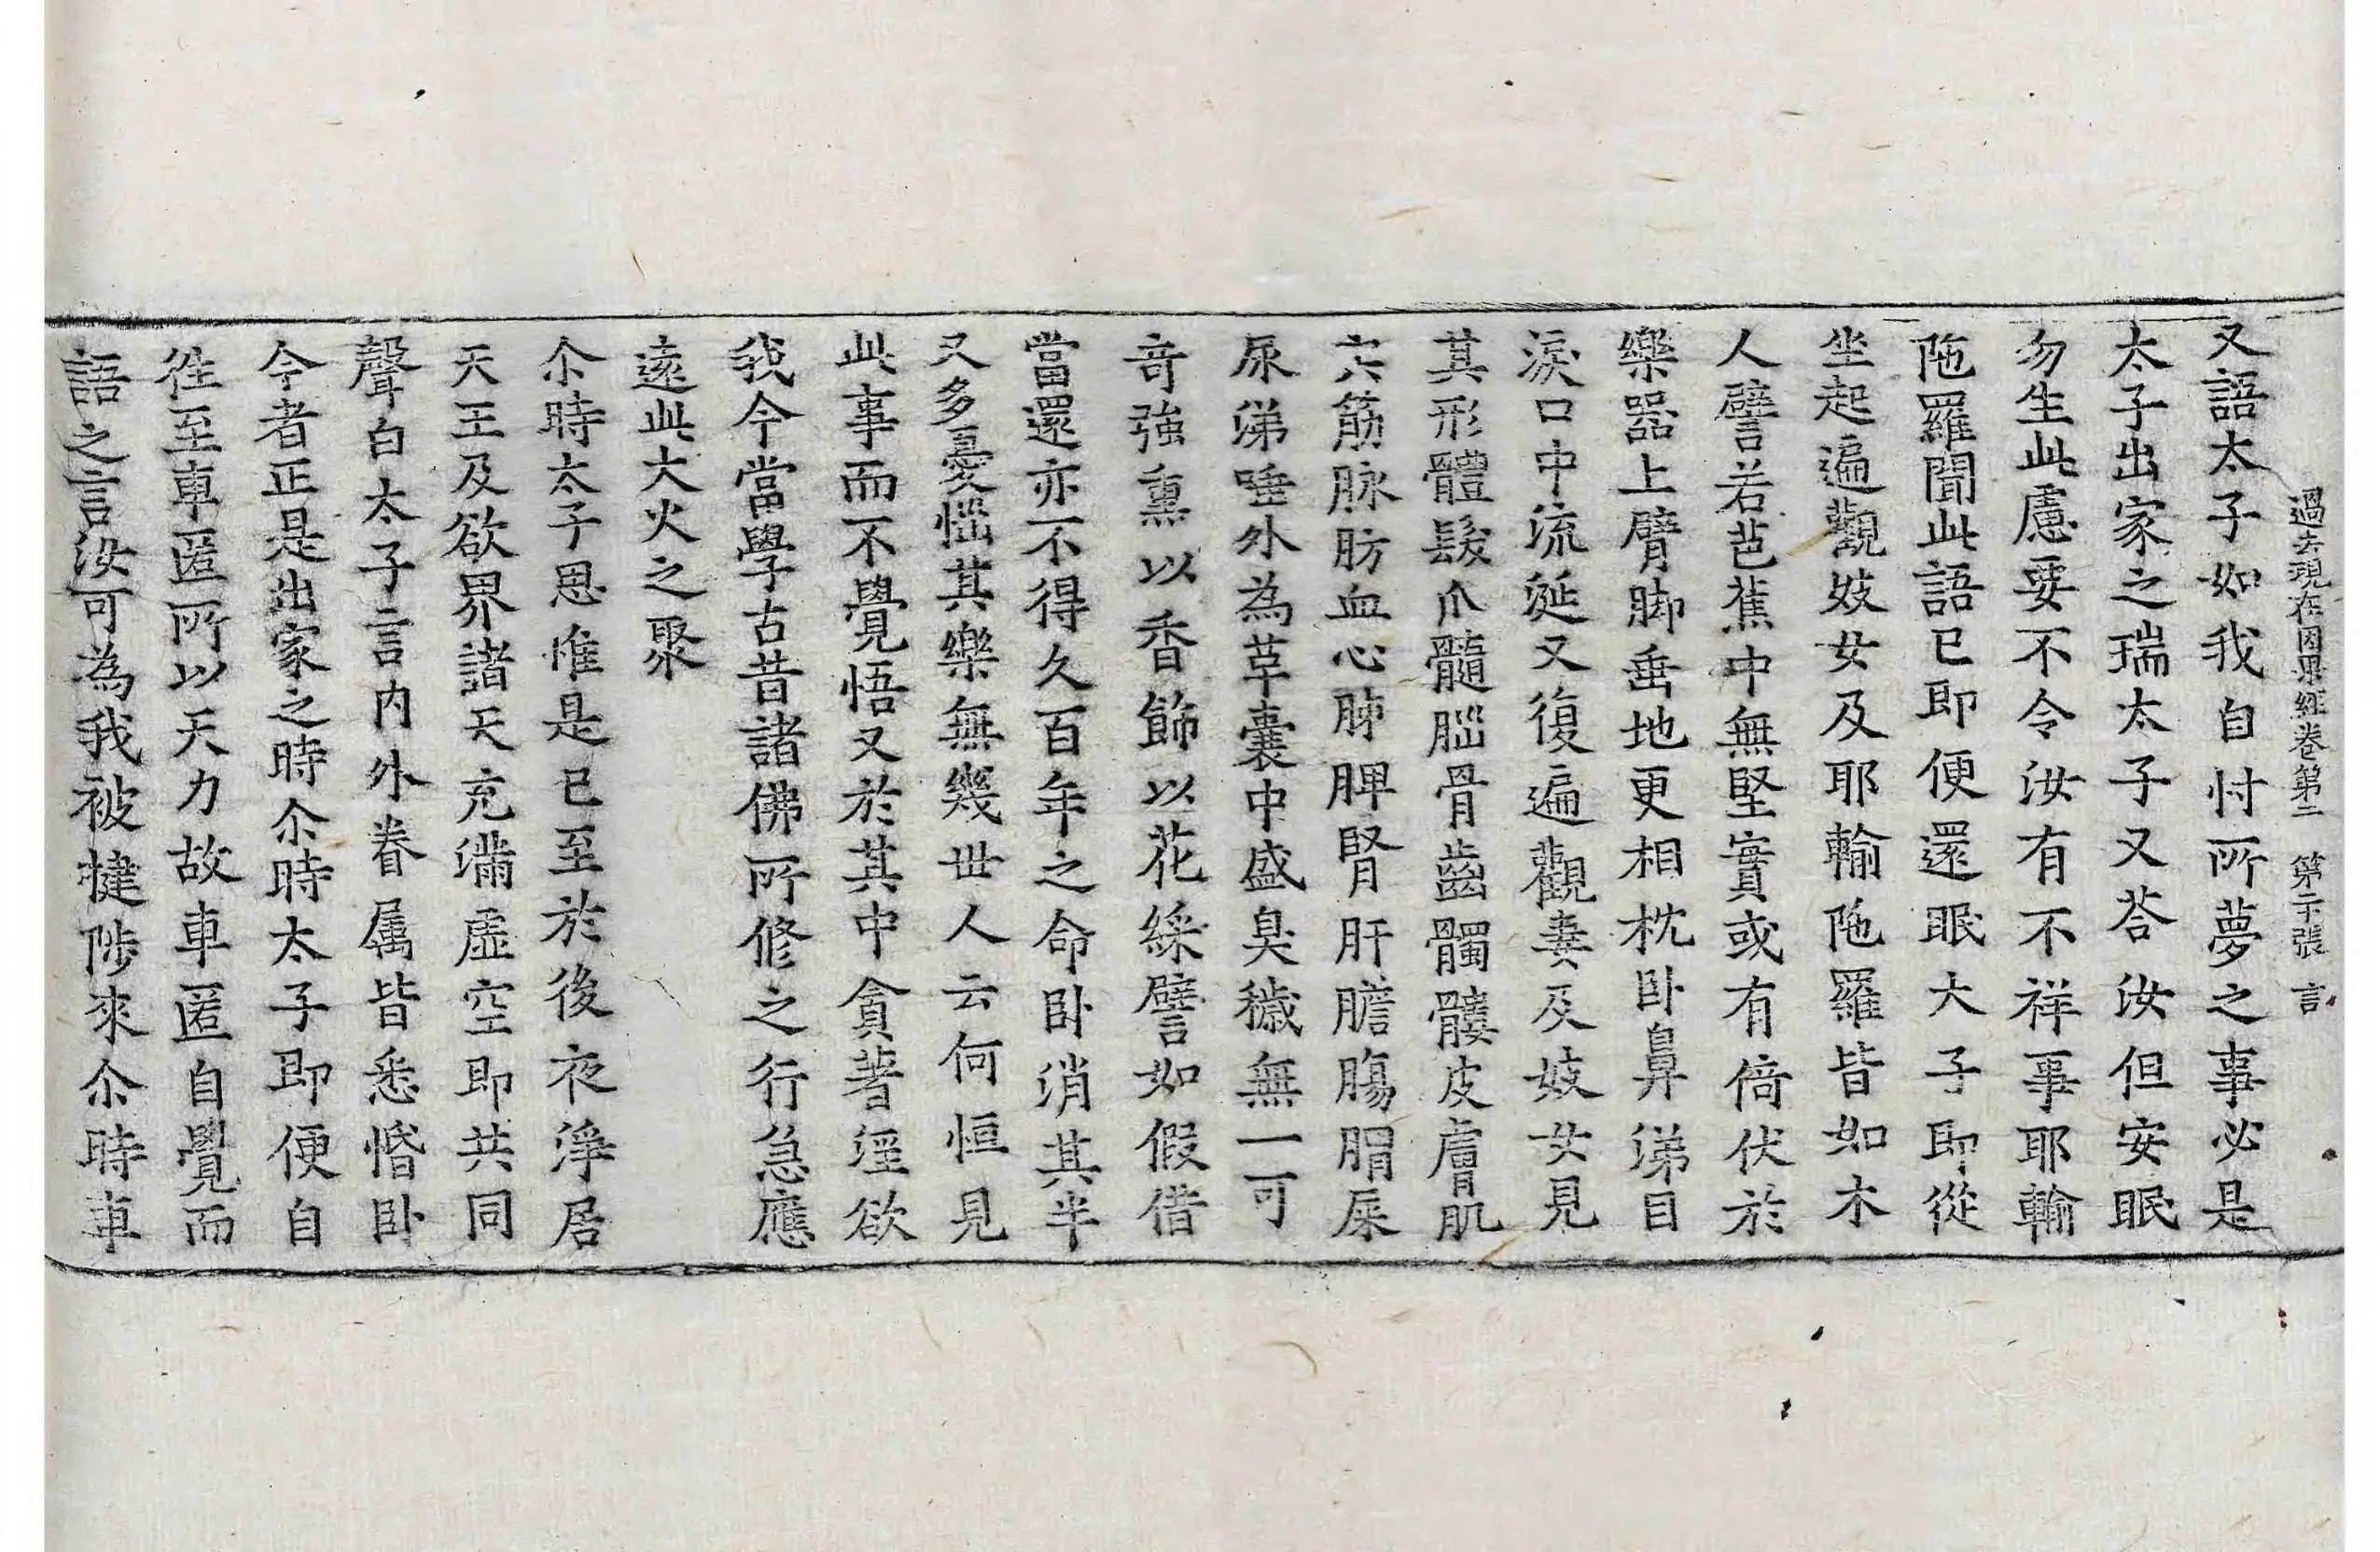 過去現在因果經卷第二　第二十張　言
又語太子如我自忖所夢之事必是
太子出家之瑞太子又荅汝但安眠
勿生此慮要不令汝有不祥事耶輸
陁羅聞此語已即便還眠太子即從
坐起遍觀妓女及耶輸陁羅皆如木
人譬若芭蕉中無堅實或有倚伏於
樂器上臂脚垂地更相枕卧鼻涕目
淚口中流涎又復遍觀妻及妓女見
其形體髮爪髓腦骨齒髑髏皮膚肌
宍筋脉肪血心肺脾腎肝膽腸胃屎
尿涕唾外為革囊中盛臭穢無一可
奇強熏以香飾以花綵譬如假借
當還亦不得久百年之命卧消其半
又多憂惱其樂無幾世人云何恒見
此事而不覺悟又於其中貪著淫欲
我今當學古昔諸佛所修之行急應
遠此大火之聚
尒時太子思惟是已至於後夜淨居
天王及欲界諸天充滿虛空即共同
聲白太子言內外眷属皆悉惛卧
今者正是出家之時尒時太子即便自
徃至車匿所以天力故車匿自覺而
語之言汝可為我被揵陟來尒時車